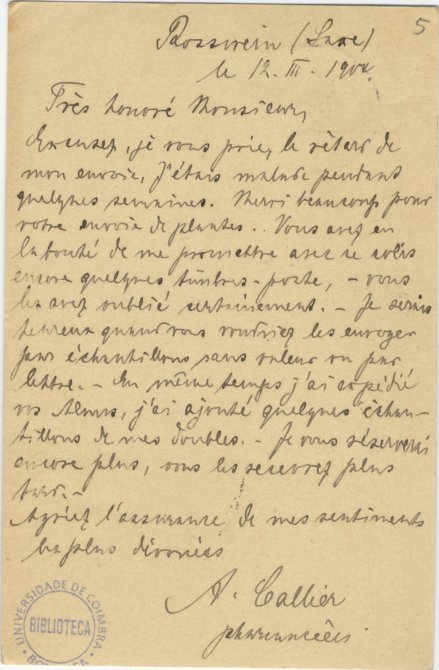 5
Rosswein (Saxe)
le 12. III. 1904.
Très honoré Monsieur,
Excusez, je vous prie, le rétard de
mon envoie, j'étais malade pendant
quelques semaines. Merci beaucoup pour
votre envoie de plantes.. Vous avez eu
la bonté de me promettre avec ce colis
encore quelques timbres-poste, - vous
les avez oublié certainement. - Je serais
heureux quand vous voudriez les envoyer
par échantillons sans valeur ou par
lettre. - En même temps j'ai expédié
vos Alnus, j'ai ajouté quelques échan-
tillons de mes doubles. - Je vous réserverai
encore plus, vous les recevrez plus
tard. -
Agréez l'assurance de mes sentiments
les plus dévoués
A. Callier
UNIVERSIDADE DE COIMBRA
BIBLIOTECA